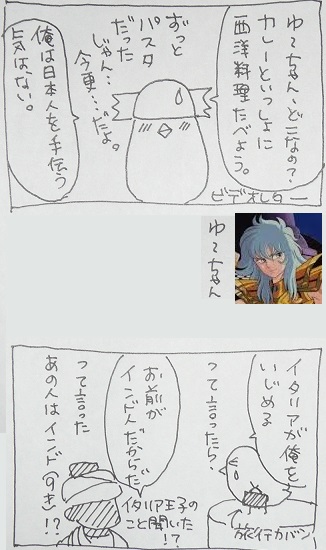 ゆーちゃん、どこなの?
カレーといっしょに
西洋料理たべよう。
ずっと
パスタ
だった
じゃん…
今更…だよ。
俺は日本人を手伝う
気はない。
ビデオレター
ゆーちゃん
イタリアが俺を
いじめる
って言ったら、
お前が
インド人だからだ
って言った
あの人はインド(好き)!?
イタリア王子の
こと聞いた!?
旅行カバン